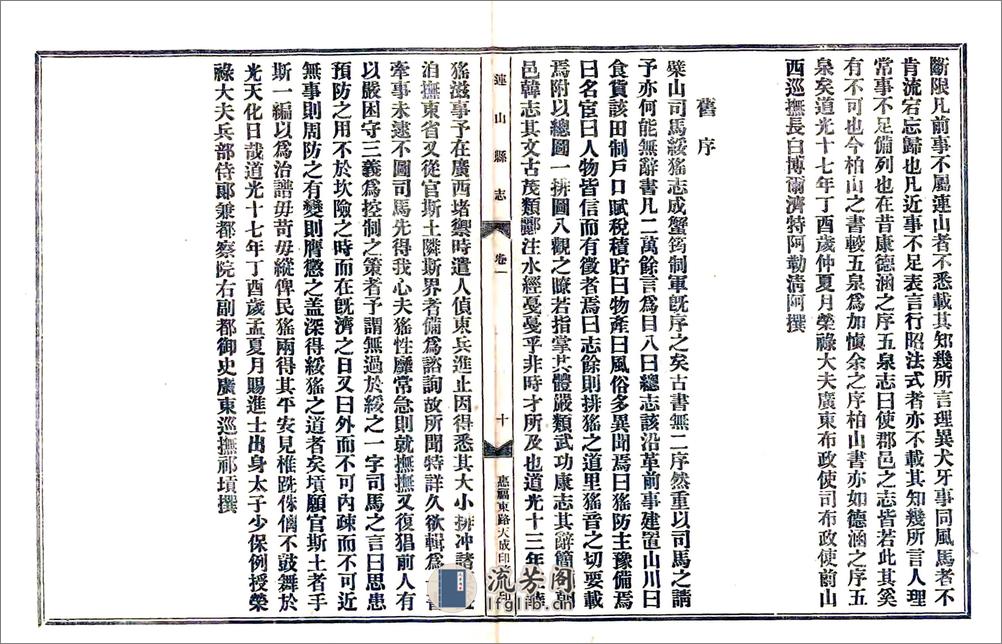 斷限凡前事不屬連山者不悉載其知幾所言理異犬牙事同風馬者不
肯流宕忘歸也凡近事不足表言行昭法式者亦不載其知幾所言人理
常事不足備列也在昔康德涵之序五泉志曰使郡邑之志皆若此其奚
有不可也今柏山之書較五泉爲加慎余之序柏山書亦如德涵之序五
泉矣道光十七年丁酉歲仲夏月榮祿大夫廣東布政使司布政使前山
西巡撫長白博爾濟特阿勒清阿撰
舊序
檗山司馬綏猺志成蟹筠制軍旣序之矣古書無二序然重以司馬之請
予亦何能無辭書凡二萬餘言爲目八曰總志該沿革前事建置山川曰
食貨該田制戶口賦稅積貯曰物產曰風俗多異聞焉曰猺防主豫備焉
曰名宦曰人物皆信而有徵者焉曰志餘則排猺之道里猺音之切要載
焉附以總圖一排圖八觀之瞭若指掌其體嚴類武功康志其辭簡
邑韓志其文古茂類酈注水經戛戛乎非時才所及也道光十三年
連山縣志
卷一
十
惠福東路天成印
猺滋事予在廣西堵禦時遣人偵東兵進止因得悉其大小排冲諸
洎撫東省又從官斯土隣斯界者備爲諮詢故所聞特詳久欲輯爲
牽事未逮不圖司馬先得我心夫猺性靡常急則就撫撫又復猖前人有
以嚴困守三義爲控制之策者予謂無過於綏之一字司馬之言曰思患
預防之用不於坎險之時而在旣濟之日又曰外而不可內疎而不可近
無事則周防之有變則膺懲之盖深得綏猺之道者矣墳願官斯土者手
斯一編以爲治譜毋苛毋縱俾民猺兩得其平安見椎跣侏儷不鼓舞於
光天化日哉道光十七年丁酉歲孟夏月賜進士出身太子少保例授榮
祿大夫兵部侍郎兼都察院右副都御史廣東巡撫祁墳撰
流芳阁
lfglib.cn